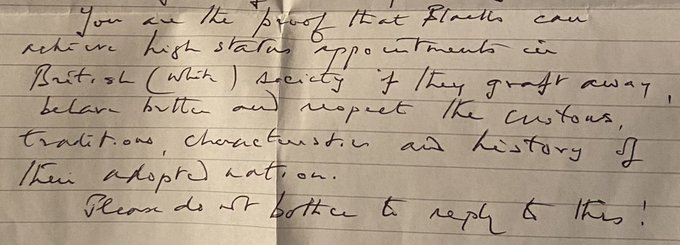 You are the proof that Blacks can
achieve high status appointments in
British (white) society if they graft away,
behave better and respect the customs,
traditions, characteristics and history of
their adopted nation.
Please do not bother to reply to this!